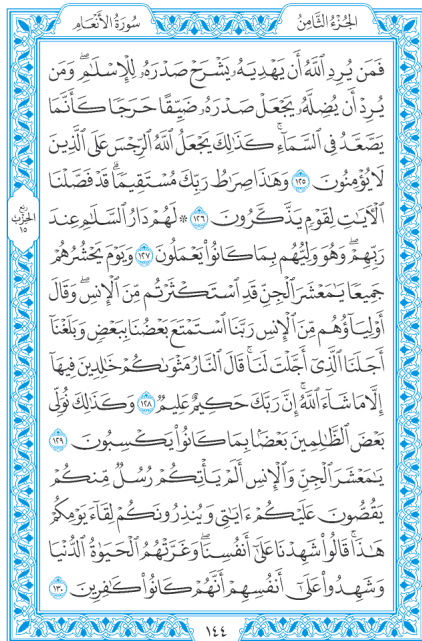 سُورَةُ الأَنْعَامِ
الجُزْءُ الثَّامِنُ
فَمَن يُرِدِ ٱللَّهُ أَن يَهْدِيَهُۥ يَشْرَحْ صَدْرَهُۥ لِلْإِسْلَٰمِۖ وَمَن
يُرِدْ أَن يُضِلَّهُۥ يَجْعَلْ صَدْرَهُۥ ضَيِّقًا حَرَجًا كَأَنَّمَا
يَصَّعَّدُ فِي ٱلسَّمَآءِۚ كَذَٰلِكَ يَجْعَلُ ٱللَّهُ ٱلرِّجْسَ عَلَى ٱلَّذِينَ
لَا يُؤْمِنُونَ ١٢٥ وَهَٰذَا صِرَٰطُ رَبِّكَ مُسْتَقِيمًاۗ قَدْ فَصَّلْنَا
ٱلْأٓيَٰتِ لِقَوْمٍ يَذَّكَّرُونَ ١٢٦ ۞ لَهُمْ دَارُ ٱلسَّلَٰمِ عِندَ
رَبِّهِمْۖ وَهُوَ وَلِيُّهُم بِمَا كَانُوا۟ يَعْمَلُونَ ١٢٧ وَيَوْمَ يَحْشُرُهُمْ
جَمِيعًا يَٰمَعْشَرَ ٱلْجِنِّ قَدِ ٱسْتَكْثَرْتُم مِّنَ ٱلْإِنسِۖ وَقَالَ
أَوْلِيَآؤُهُم مِّنَ ٱلْإِنسِ رَبَّنَا ٱسْتَمْتَعَ بَعْضُنَا بِبَعْضٍ وَبَلَغْنَآ
أَجَلَنَا ٱلَّذِيٓ أَجَّلْتَ لَنَاۚ قَالَ ٱلنَّارُ مَثْوَىٰكُمْ خَٰلِدِينَ فِيهَآ
إِلَّا مَا شَآءَ ٱللَّهُۗ إِنَّ رَبَّكَ حَكِيمٌ عَلِيمٌ ١٢٨ وَكَذَٰلِكَ نُوَلِّي
بَعْضَ ٱلظَّٰلِمِينَ بَعْضًۢا بِمَا كَانُوا۟ يَكْسِبُونَ ١٢٩
يَٰمَعْشَرَ ٱلْجِنِّ وَٱلْإِنسِ أَلَمْ يَأْتِكُمْ رُسُلٌ مِّنكُمْ
يَقُصُّونَ عَلَيْكُمْ ءَايَٰتِي وَيُنذِرُونَكُمْ لِقَآءَ يَوْمِكُمْ
هَٰذَاۚ قَالُوا۟ شَهِدْنَا عَلَىٰٓ أَنفُسِنَاۖ وَغَرَّتْهُمُ ٱلْحَيَوٰةُ ٱلدُّنْيَا
وَشَهِدُوا۟ عَلَىٰٓ أَنفُسِهِمْ أَنَّهُمْ كَانُوا۟ كَٰفِرِينَ ١٣٠
ربع
الحزب
١٥
١٤٤